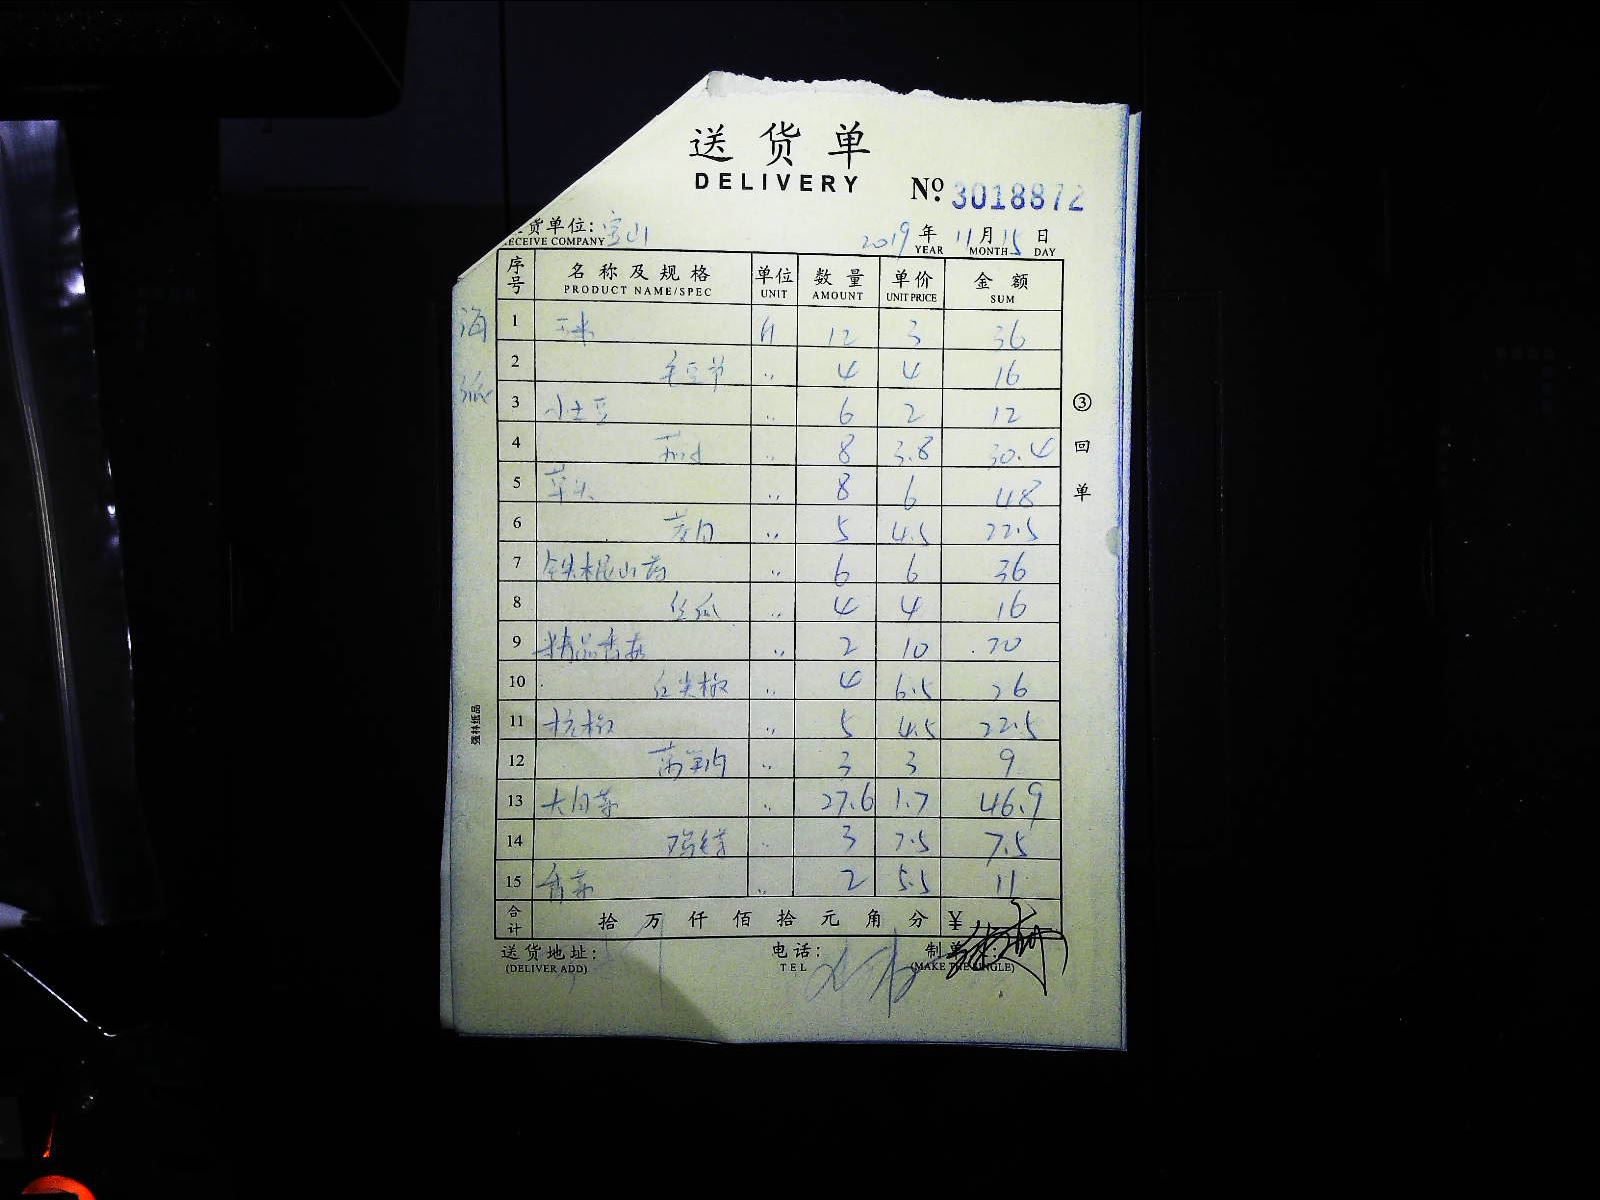 送货单
DELIVERY
No. 3018872
货单位: 宝山
RECEIVE COMPANY
2019 年 11 月 15 日
YEAR MONTH DAY
序号 名称及规格 单位 数量 单价 金额
PRODUCT NAME/SPEC UNIT AMOUNT UNIT PRICE SUM
1 玉米 斤 12 3 36
2 毛豆节 〃 4 4 16
3 小土豆 〃 6 2 12
4 〃 8 3.8 30.4
5 草头 〃 8 6 48
6 茭白 〃 5 4.5 22.5
7 铁棍山药 〃 6 6 36
8 丝瓜 〃 4 4 16
9 精品香菇 〃 2 10 20
10 红尖椒 〃 4 6.5 26
11 杭椒 〃 5 4.5 22.5
12 〃 3 3 9
13 大白菜 〃 27.6 1.7 46.9
14 鸡毛菜 〃 3 2.5 7.5
15 香菜 〃 2 5.5 11
合计 拾 万 仟 佰 拾 元 角 分 ¥
送货地址: 电话: 制单
(DELIVER ADD) TEL (MAKE THE SINGLE)
③回单
强林纸品